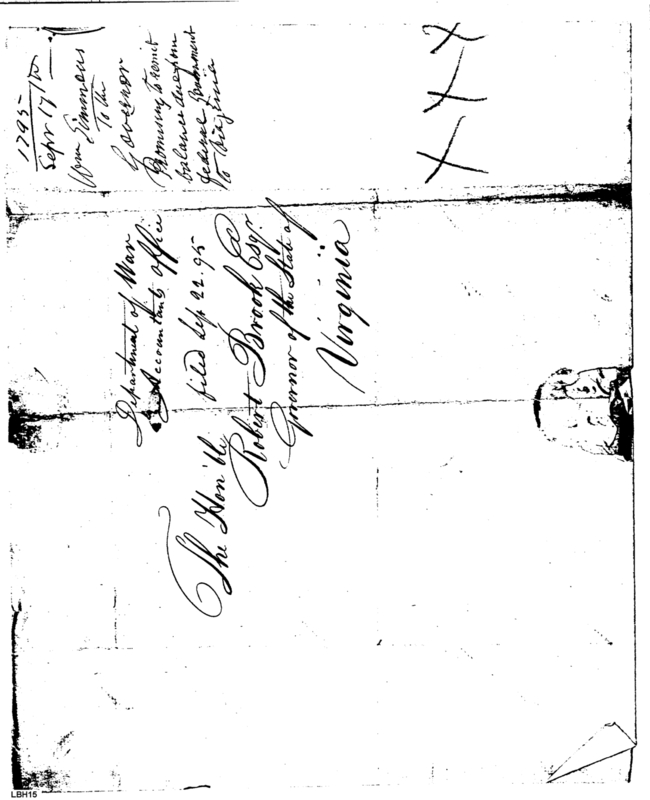 1795
Sepr 17th
Wm Simmons
To the
Governor
Promising to remit
balance due from
federal Government
to Virginia
X X X
Department of War
Accountants office
filed Sep 22. 95
The Hon'ble
Robert Brook Esqr.
Governor of the State of
Virginia
LBH15